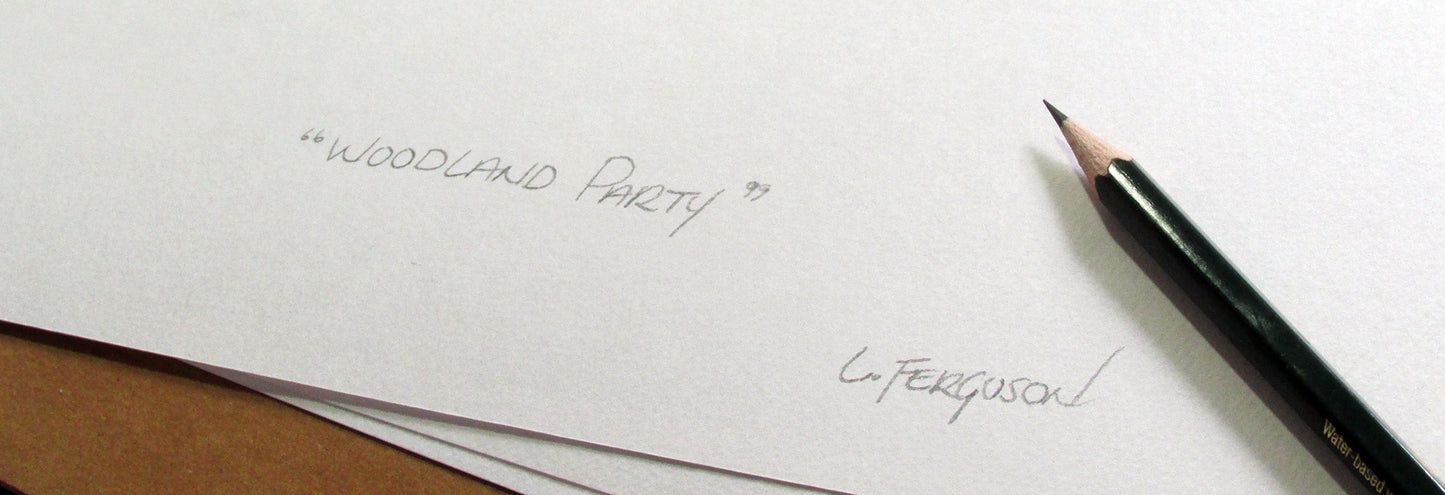 “WOODLAND PARTY”
L. FERGUSON
Water-based